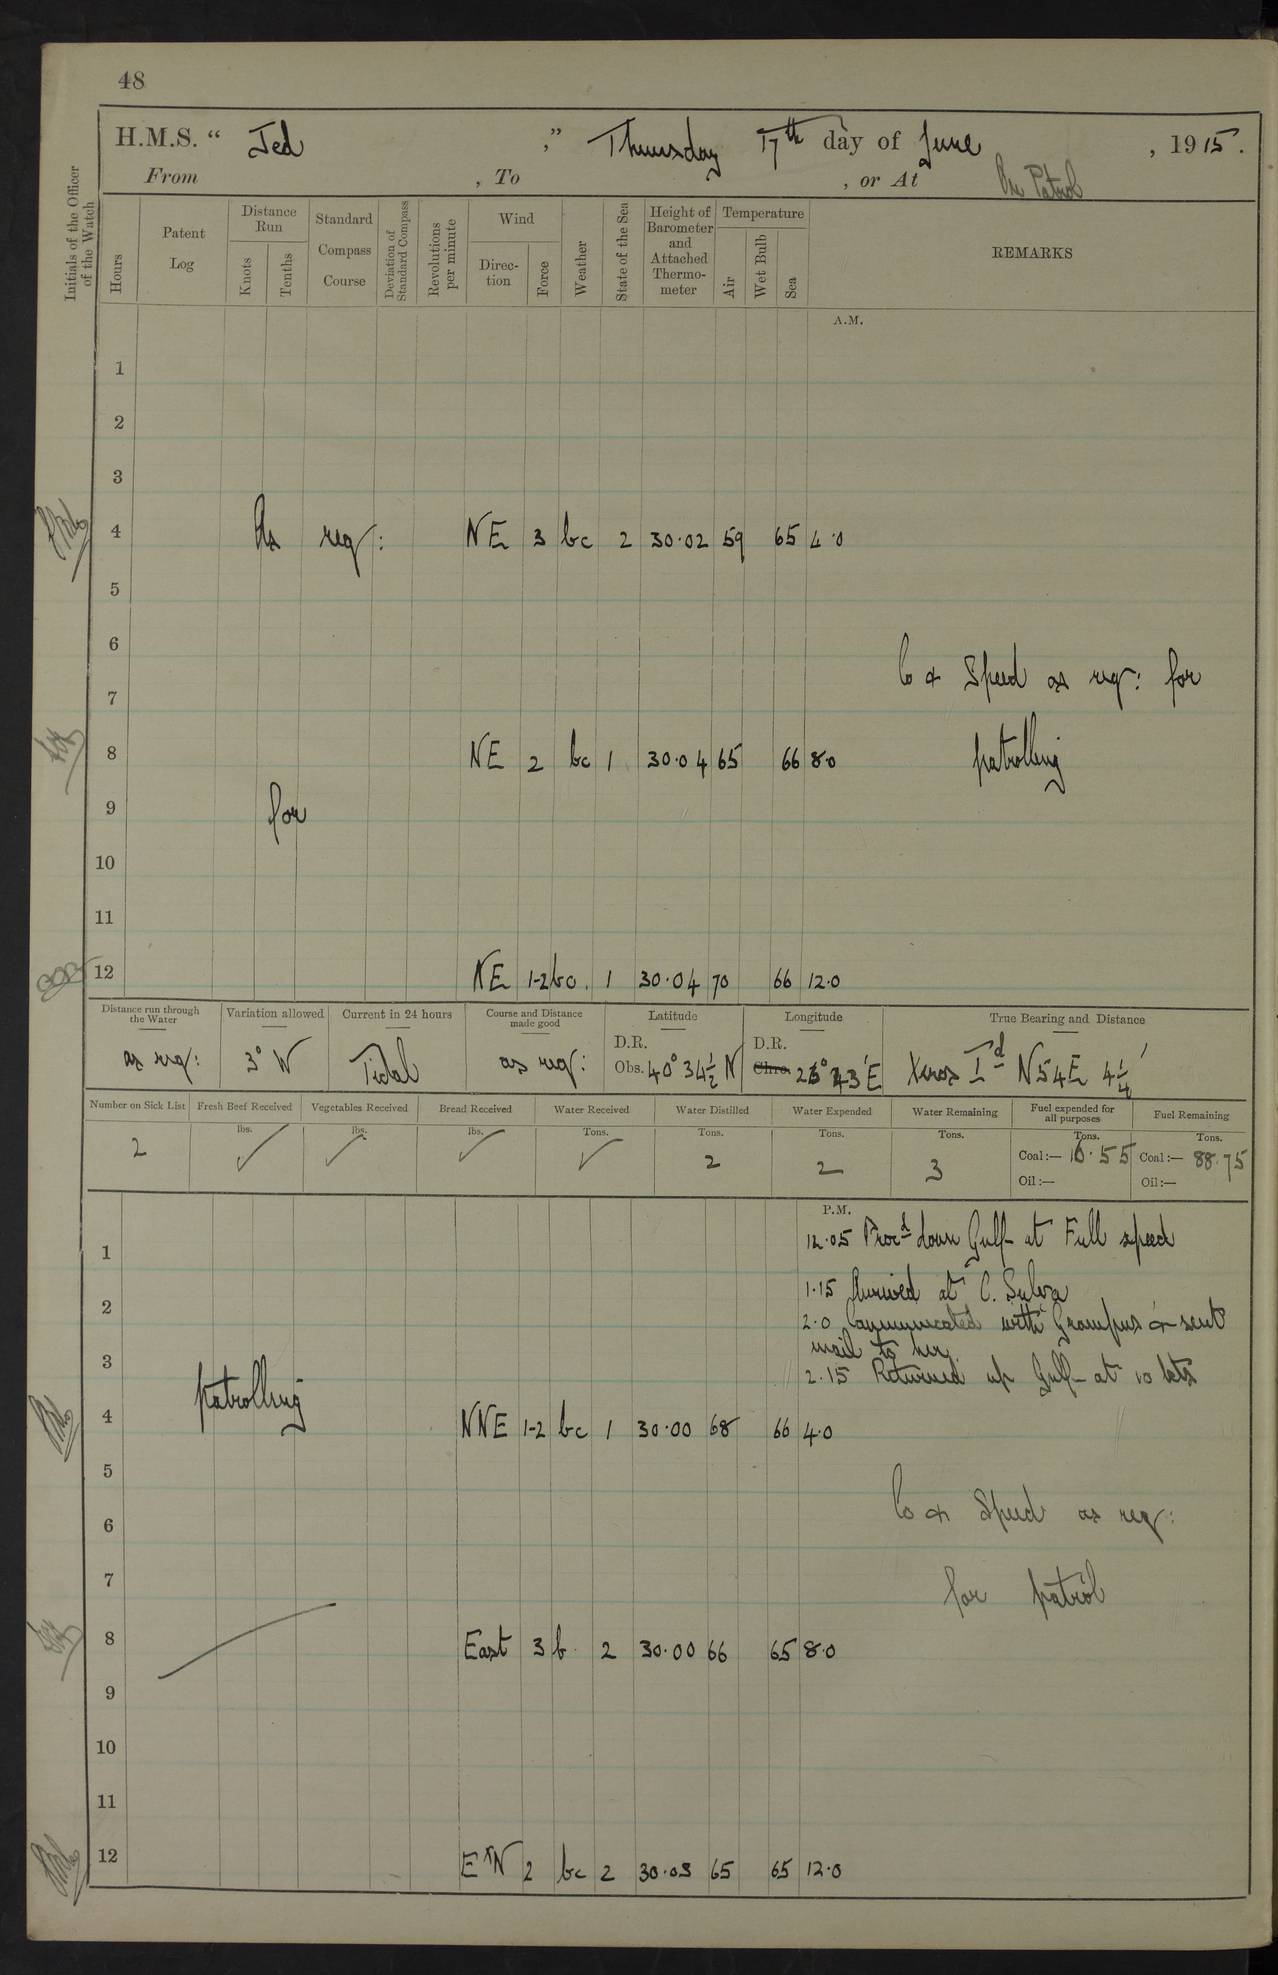 48
H.M.S. “ Jed ,” Thursday 17th day of June , 1915.
From , To , or At On Patrol
Initials of the Officer of the Watch
Hours
Patent Log
Distance Run
Knots
Tenths
Standard Compass Course
Deviation of Standard Compass
Revolutions per minute
Wind
Direction
Force
Weather
State of the Sea
Height of Barometer and Attached Thermometer
Temperature
Air
Wet Bulb
Sea
REMARKS
A.M.
1
2
3
4 As req: NE 3 bc 2 30.02 59 65 4.0
5
6
Co & Speed as req: for
7
8 NE 2 bc 1 30.04 65 66 8.0 patrolling
9 for
10
11
12 NE 1-2 bc. 1 30.04 70 66 12.0
Distance run through the Water
Variation allowed
Current in 24 hours
Course and Distance made good
Latitude
Longitude
True Bearing and Distance
D.R. D.R.
as req: 3° W Tidal as req: Obs. 40° 34½ N Chro. 26° 43' E Xeros Id N54E 4¼'
Number on Sick List
Fresh Beef Received
Vegetables Received
Bread Received
Water Received
Water Distilled
Water Expended
Water Remaining
Fuel expended for all purposes
Fuel Remaining
lbs. lbs. lbs. Tons. Tons. Tons. Tons. Tons. Tons.
2 ✓ ✓ ✓ ✓ 2 2 3 Coal:— 16.55 Coal:— 88.75
Oil:— Oil:—
P.M.
12.05 Procd down Gulf at Full speed
1
1.15 Arrived at C. Sulva
2
2.0 Communicated with Grampus & sent
mail to her.
3
2.15 Returned up Gulf at 10 kts
patrolling
4 NNE 1-2 bc 1 30.00 68 66 4.0
5
Co & Speed as req:
6
7
for patrol
8 East 3 b. 2 30.00 66 65 8.0
9
10
11
12 E'N 2 bc 2 30.03 65 65 12.0